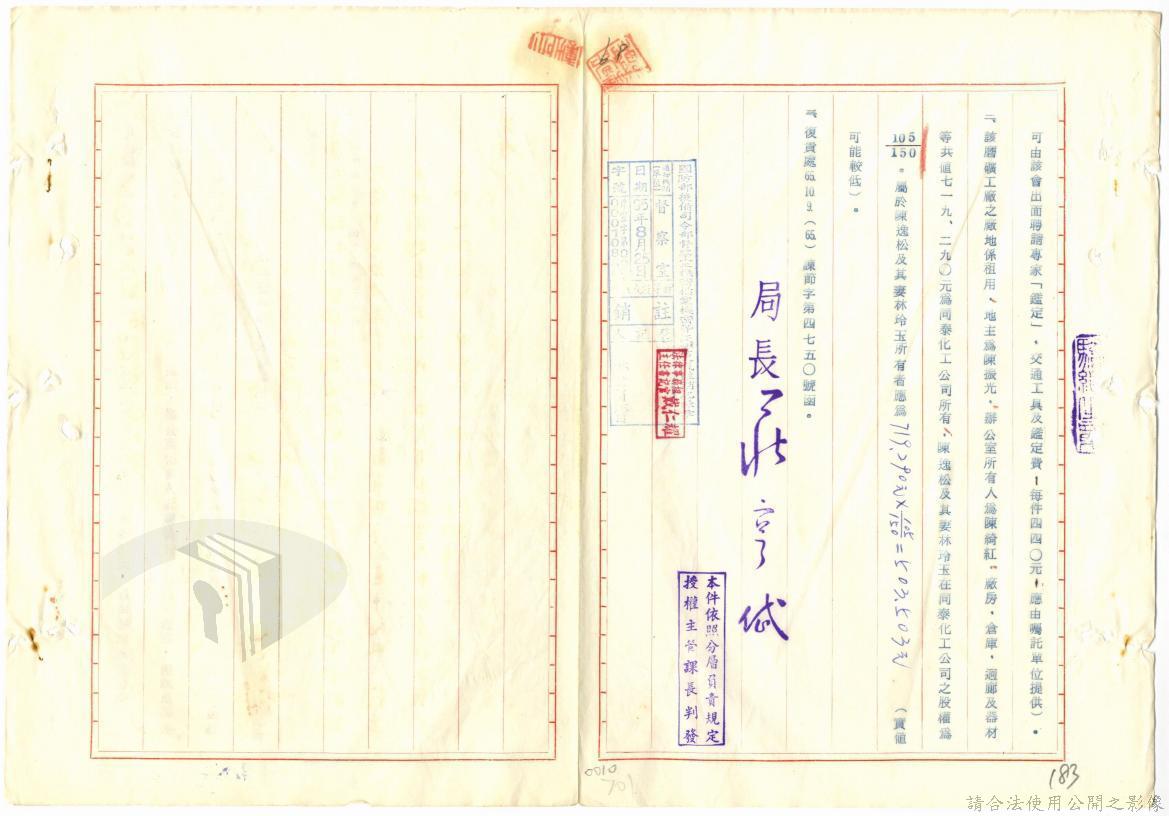 可由該會出面聘請專家「鑑定」，交通工具及鑑定費－每件四四〇元－應由囑託單位提供）。
二、該磨礦工廠之廠地係租用，地主為陳振光，辦公室所有人為陳綺紅，廠房，倉庫，週廊及器材
等共値七一九、二九〇元為同泰化工公司所有，陳逸松及其妻林玲玉在同泰化工公司之股權為
105/150。屬於陳逸松及其妻林玲玉所有者應為719,290元×105/150=503,503元（實值
可能較低）。
三、復貴處65.10.9.（65）諫節字第四七五〇號函。
局長 莊亨岱
本件依照分層負責規定
授權主管課長判發
督察室
日期 65年8月25日
註銷
戴仁耀
183
0010
701
請合法使用公開之影像